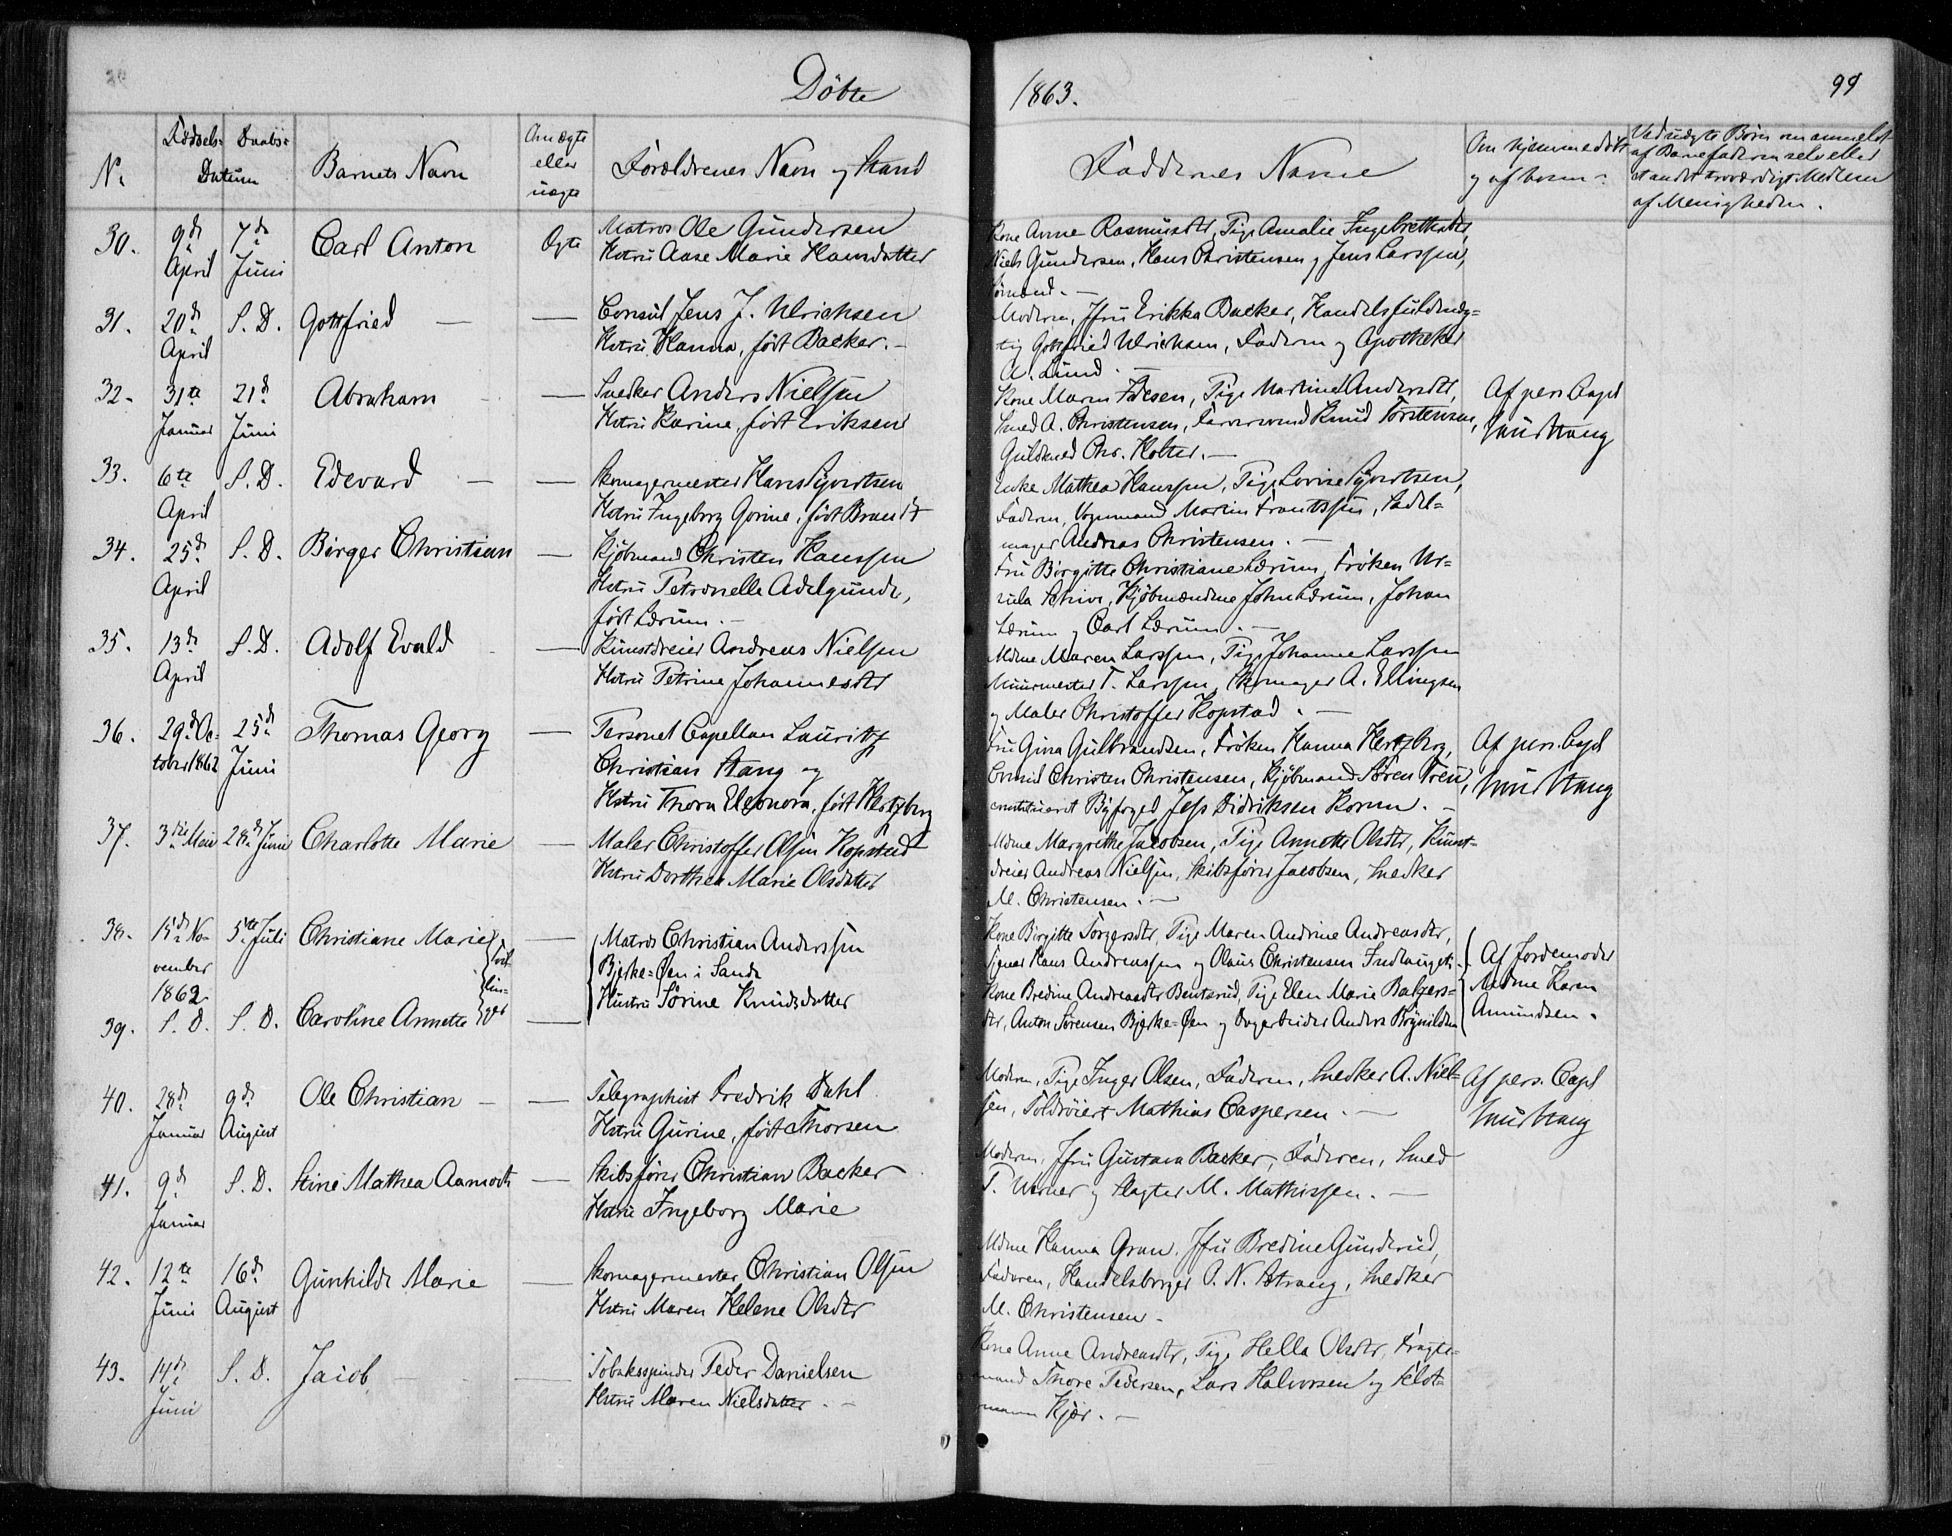 Döbte 1863. 99
No
Födsels- Daabs-
Datum
Barnets Navn
Om ægte
eller
uægte
Forældrenes Navn og Stand
Faddernes Navne
Om hjemmedöbt
og af hvem
Ved uægte Börn om anmeldt
af Barnefaderen selv eller
et andet troværdigt Medlem
af Menigheden.
30. 9de April 7de Juni Carl Anton Ægte
Matros Ole Gundersen
Hstru Aase Marie Hansdatter
Kone Anne Rasmusdtr, Pige Amalie Ingebrethsdtr,
Niels Gundersen, Hans Christensen og Jens Larssen,
Sömænd. —
31. 20de April S. D. Gottfried — —
Consul Jens J. Ulrichsen
Hstru Hanna, född Backer. —
Moderen, Jfru Erikka Backer, Handelsfuldmæg-
tig Gottfried Ulrichsen, Faderen og Apotheker
A. Lund. —
32. 31te Januar 21de Juni Abraham — —
Snedker Anders Nielsen
Hstru Karine, födt Eriksen
Kone Maren Foesen, Pige Martine Andersdtr,
Smed A. Christensen, Farversvend Knud Torstensen,
Guldsmed Chr. Holter. —
Af pers. Capel
Laur Stang
33. 6te April S. D. Edevard — —
Skomagermester Hans Syvertsen
Hstru Ingeborg Gorine, födt Brandt
Enke Mathea Hanssen, Pige Lovise Syvertsen,
Faderen, Vognmand Martin Frantssen, Sadel-
mager Andreas Christensen. —
34. 25de April S. D. Birger Christian —
Kjöbmand Christen Hanssen
Hstru Petronelle Adelgunde,
födt Lærum. —
Fru Birgitte Christiane Lærum, Fröken Ur-
sula Schive, Kjöbmændene John Lærum, Johan
Lærum og Carl Lærum. —
35. 13de April S. D. Adolf Evald —
Kunstdreier Andreas Nielsen
Hstru Petrine Johannesdtr
Mdme Maren Larssen, Pige Johanne Larssen
Muurmester T. Larssen, Skomager A. Ellingsen
og Maler Christoffer Kopstad. —
36. 29de October 1862 25de Juni Thomas Georg —
Personel Capellan Lauritz
Christian Stang og
Hstru Thora Eleonora, födt Hertzberg
Fru Gina Gulbrandsen, Fröken Hanna Hertzberg,
Consul Christen Christensen, Kjöbmand Sören Breu,
constitueret Byfoged Jess Didriksen Koren. —
Af pers. Capel
Laur Stang
37. 3die Mai 28de Juni Charlotte Marie —
Maler Christoffer Olsen Kopstad
Hstru Dorthea Marie Olsdatter
Mdme Margrethe Jacobsen, Pige Annette Olsdtr, Kunst-
dreier Andreas Nielsen, Skibsförer Jacobsen, Snedker
M. Christensen. —
38. 15de November 1862 5te Juli Christiane Marie —
39. S. D. S. D. Caroline Annette —
Tvil-
lin-
ger
Matros Christian Anderssen
Bjerke-Öen i Sande
Hustru Sörine Knudsdatter
Kone Birgitte Torgersdtr, Pige Maren Andrine Andreasdtr,
Hans Andreassen og Olaus Christensen
Kone Bredine Andreasdtr Bentsrud, Pige Elen Marie Balgers-
dtr, Anton Sörensen Bjerke-Öen og Dagarbeider Anders Brynildsen
Af Jordemoder
Mdme Karen
Amundsen.
40. 28de Januar 9de August Ole Christian — —
Telegraphist Fredrik Dahl
Hstru Gurine, födt Thorsen
Moderen, Pige Inger Olsen, Faderen, Snedker A. Niel-
sen, Toldröiert Mathias Caspersen. —
Af pers. Capel
Laur Stang
41. 9de Januar S. D. Stine Mathea Aamodt —
Skibsförer Christian Backer
Hstru Ingeborg Marie
Moderen, Jfru Gustava Backer, Faderen, Smed
T. Werner og Slagter M. Mathissen. —
42. 12te Juni 16de August Gunhilde Marie —
Skomagermester Christian Olsen
Hstru Maren Helene Olsdtr
Mdme Hanna Gran, Jfru Bredine Gunderud,
Faderen, Handelsborger P. N. Strang, Snedker
M. Christensen —
43. 14de Juni S. D. Jacob — —
Tobaksspinder Peder Danielsen
Hstru Maren Nielsdatter. —
Kone Anne Andreasdtr, Pige Hella Olsdtr, Fragte-
mand Thore Pedersen, Lars Halvorsen og Slot-
mann Kjær. —